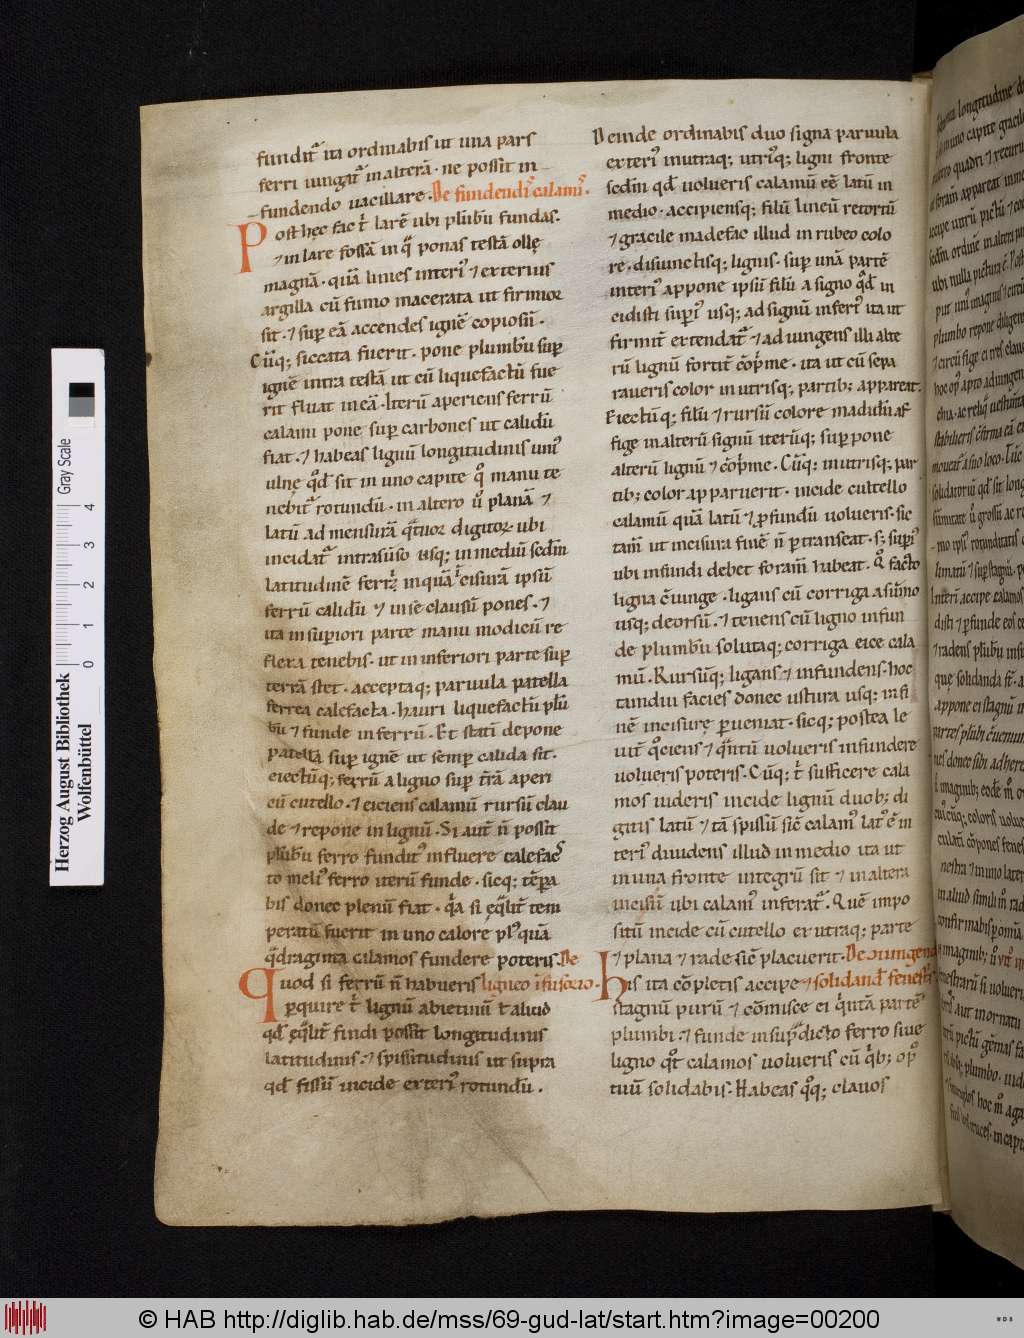 fundit᷑ ita ordinabis ut una pars
ferri iungat᷑ in alterā · ne possit in
fundendo uacillare · De fundendis calamis.
Post hęc fac t̄ larē ubi plūbū fundas.
⁊ in lare fossā in qͣ ponas testā ollę
magnā · quā linies interiꝰ ⁊ exterius
argilla cū fimo macerata ut firmior
sit · ⁊ sup̄ eā accendes ignē copiosū ·
Cūq; siccata fuerit · pone plumbū sup̄
ignē intra testā ut cū liquefactū fue
rit fluat in eā · Iterū aperiens ferrū
calami pone sup̄ carbones ut calidū
fiat · ⁊ habeas lignū longitudinis uniꝰ
ulnę qd̄ sit in uno capite qͦ manu te
nebit᷑ rotundū · in altero u̅ planū ⁊
latū ad mensurā qͣtuor digitor ubi
incidat᷑ intrasūso usq; in mediū scdm̄
latitudinē ferri in quā cisurā ipsū
ferrū calidū ⁊ in se clausū pones · ⁊
ita in sup̄iori parte manu modicū re
flexa tenebis · ut in inferiori parte sup̄
terrā stet · acceptaq; paruula patella
ferrea calefacta · hauri liquefactū plū
bū ⁊ funde in ferrū · Et statī depone
patellā sup̄ ignē ut semp̄ calida sit ·
eiectūq; ferrū a ligno sup̄ t̄rā aperi
cū cutello · ⁊ eiciens calamū rursū clau
de ⁊ repone in lignū · Si aut̄ n̄ possit
plūbū ferro fundit᷑ influere calefac
to meliꝰ ferro iterū funde · sicq; tēpa
bis donec plenū fiat · qͣa si eq̄lit̄ tem
peratū fuerit in uno calore plꝰ quā
qͣdraginta calamos fundere poteris. De
Quod si ferrū n̄ habueris ligneo īfusorio ·
perquire t̄ lignū abietinū t̄ aliud
qd̄ eq̄lit̄ findi possit longitudinis
latitudinis · ⁊ spissitudinis ut supra
qd̄ fissū incide exteriꝰ rotundū .
Deinde ordinabis duo signa paruula
exteriꝰ in utraq; utriꝰq; ligni fronte
scdm̄ qd̄ uolueris calamū eē latū in
medio · accipiensq; filū lineū retortū
⁊ gracile madefac illud in rubeo colo
re · disiunctisq; lignis · sup̄ unā partē
interiꝰ appone ipsū filū a signo qd̄ in
cidisti sup̄iꝰ usq; ad signū inferiꝰ ita ut
firmit̄ extendat᷑ ⁊ adiungens illi alte
rū lignū fortit̄ cōp̄me · ita ut cū sepa
raueris color in utrisq; partib; appareat.
Eiectūq; filū ⁊ rursū colore madidū af
fige in alterū signū iterūq; sup̄pone
alterū lignū ⁊ cōp̄me · Cūq; in utrisq; par
tib; color apparuerit · incide cultello
calamū quā latū ⁊ p̄fundū uolueris · sic
tam̄ ut incisura finē n̄ p̄transeat · s; sup̄iꝰ
ubi infundi debet foram̄ habeat · Qͦ facto
ligna c̄iunge · ligans cū corrigia a sūmo
usq; deorsū · ⁊ tenens cū ligno infun
de plumbū solutaq; corrigia eice cala
mū · Rursūq; ligans ⁊ infundens · hoc
tamdiu facies donec ustura usq; in fi
nē incisurę p̄ueniat · sicq; postea le
uit̄ qͦciens ⁊ qͣntū uolueris infundere
uolueris poteris · Cūq; t̄ sufficere cala
mos uideris incide lignū duob; di
gitis latū ⁊ tā spissū sic̄ calamꝰ latꝰ ē in
teriꝰ diuidens illud in medio ita ut
in una fronte integrū sit ⁊ in altera
incisū ubi calamꝰ inferat᷑ · Quē impo
sitū incide cū cutello ex utraq; parte
⁊ plana ⁊ rade sic̄ placuerit · De iungend
His ita cōpletis accipe ⁊ solidand fenestris
stagnū purū ⁊ cōmisce ei qͥntā partē
plumbi · ⁊ funde in sup̄dicto ferro siue
ligno qͦt calamos uolueris cū qͥb; opꝰ
tuū solidabis · Habeas qͦq; clauos
Herzog August Bibliothek
Wolfenbüttel
Gray Scale
0 1 2 3 4
© HAB http://diglib.hab.de/mss/69-gud-lat/start.htm?image=00200